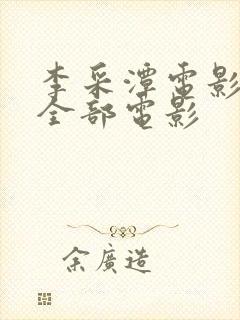 李采潭電影
全部電影
余廣造